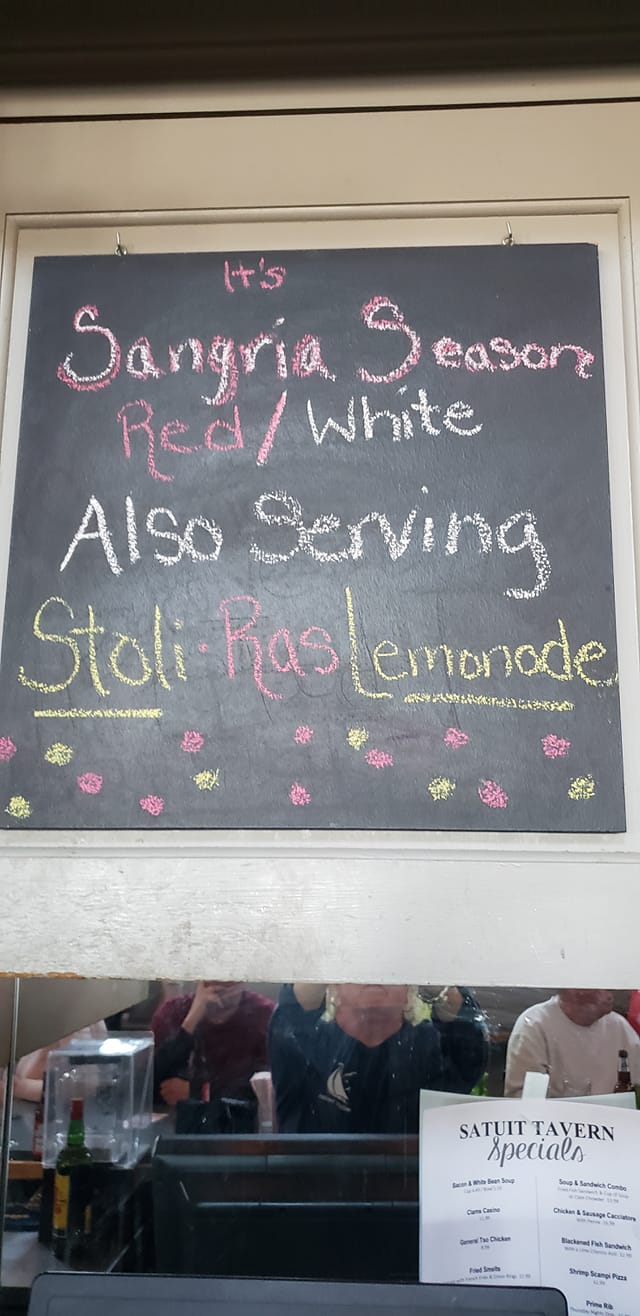 It's
Sangria Season
Red/White
Also Serving
Stoli·Ras Lemonade
SATUIT TAVERN
Specials
Bacon & White Bean Soup
Clams Casino
General Tso Chicken
Fried Smelts
Soup & Sandwich Combo
Chicken & Sausage Cacciatore
Blackened Fish Sandwich
Shrimp Scampi Pizza
Prime Rib